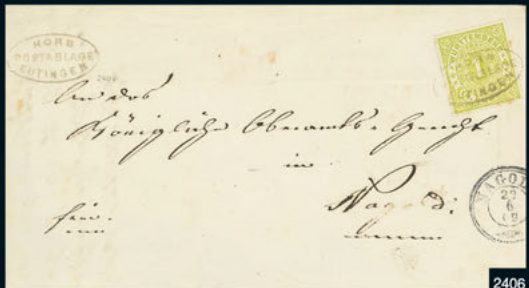 HORB
POSTABLAGE
EUTINGEN
2406
An das
Königliche Oberamts-Gericht
in
Nagold.
frei.
NAGOLD
22
6
2406